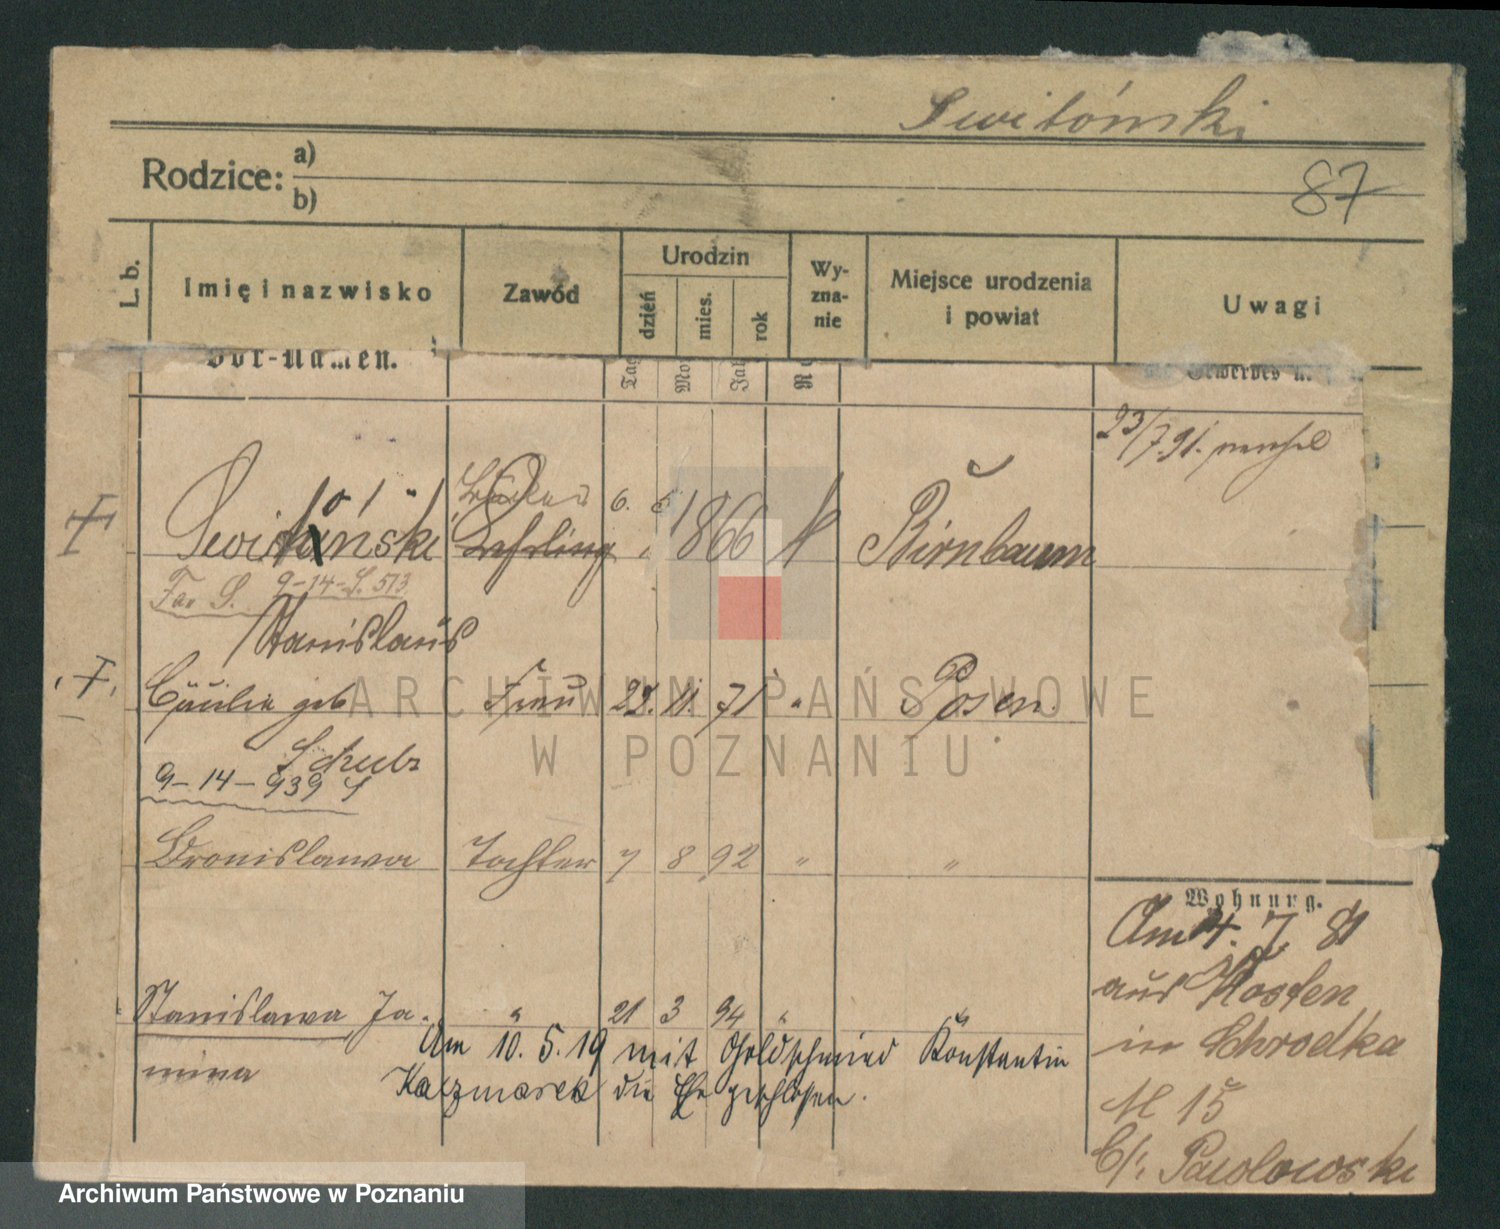 Switónski
Rodzice: a)
b)
87
L. b.
Imię i nazwisko
Zawód
Urodzin
dzień
mies.
rok
Wyzna-
nie
Miejsce urodzenia
i powiat
Uwagi
Vor-Namen.
Tag
Mo
Jah
Gewerbes u.
23/7.91.
Switónski
Lehrling
6. 6 1866
K
Birnbaum
9-14-S. 573
Stanislaus
Cäcilie geb
Frau
29. 11. 71
"
Posen.
Schulz
9-14-939 S
Bronislawa
Tochter
7 8 92
"
"
Wohnung.
Am 4. 7. 81
aus Kosten
in Schrodka
№ 15
b/: Pawlowski
Stanislawa Ja-
"
21 3 94
"
"
nina
Am 10. 5. 19 mit Goldschmied Konstantin
Kaczmarek die Ehe geschlossen.
ARCHIWUM PAŃSTWOWE
W POZNANIU
Archiwum Państwowe w Poznaniu